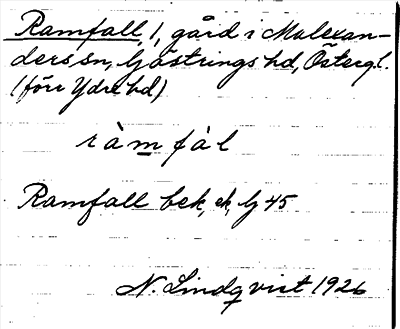 Ramfall, 1, gård i Malexan-
ders sn, Göstrings hd, Östergl.
(förr Ydre hd)
ràmfàl
Ramfall bek, ek, lj 45
N. Lindqvist 1926